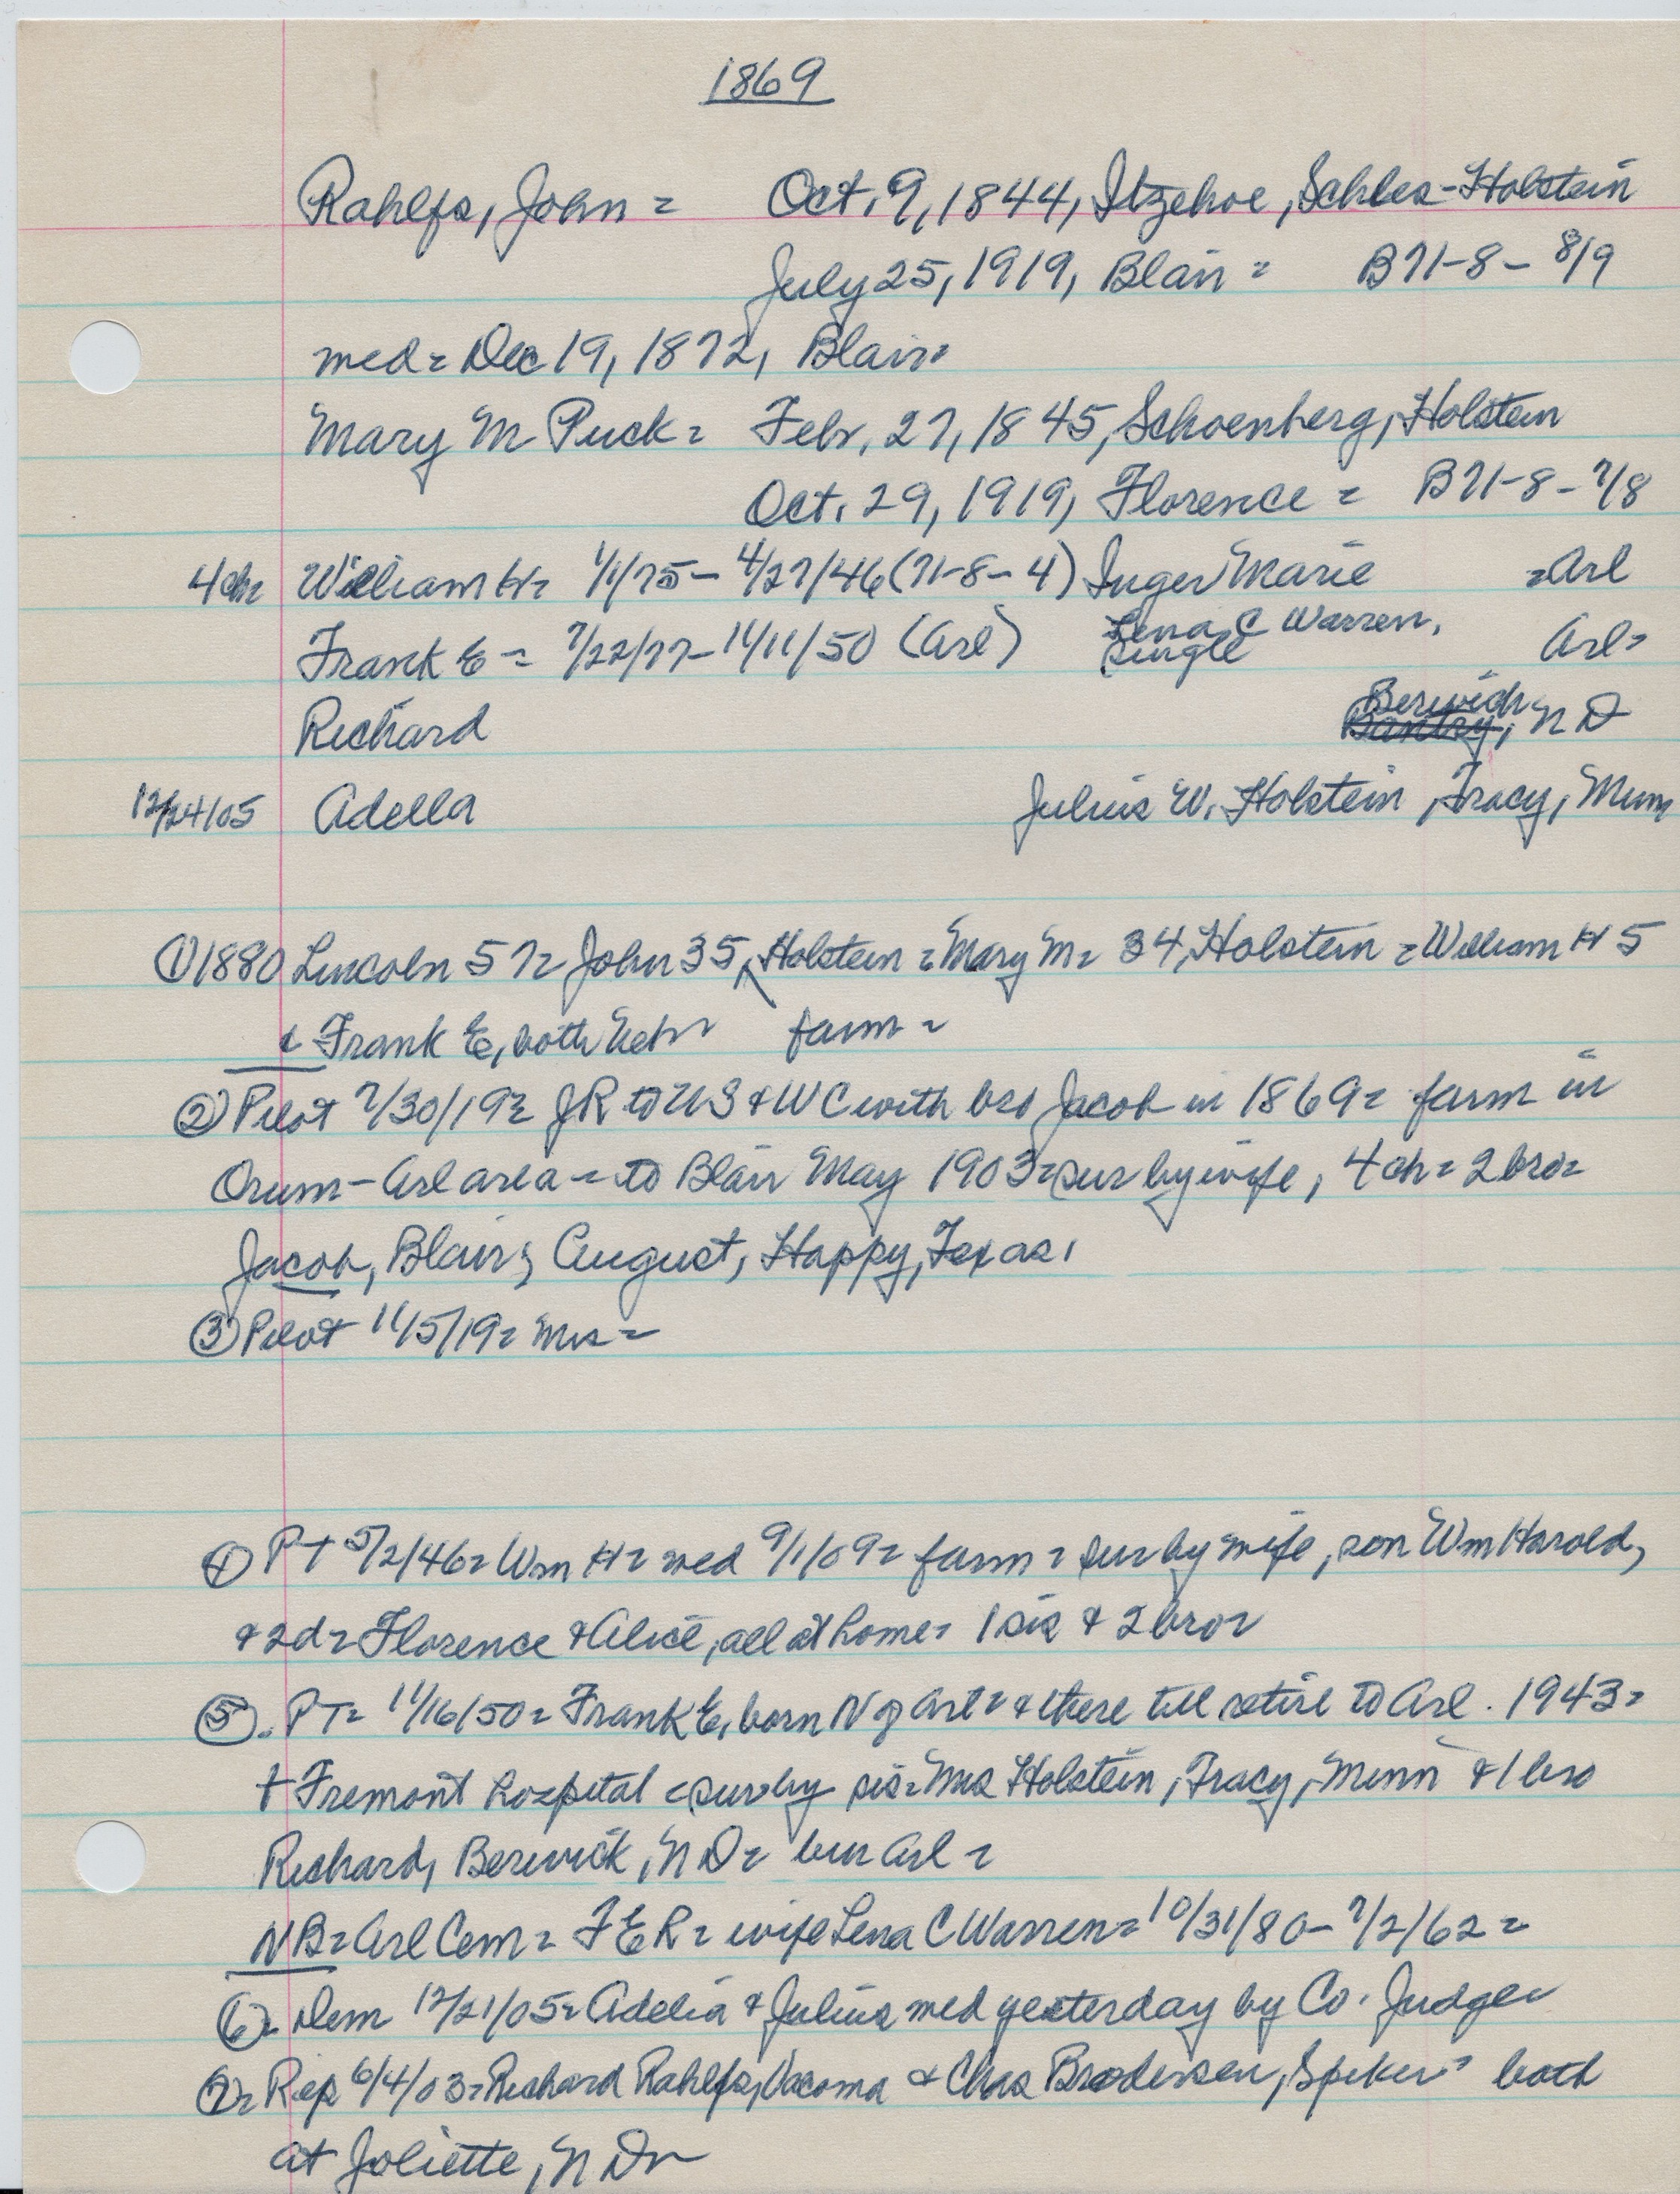 1869
Rahlfs, John = Oct. 9, 1844, Itzehoe, Schles-Holstein
July 25, 1919, Blair = B71-8-8/9
med = Dec 19, 1872, Blair =
Mary M Puck = Febr. 27, 1845, Schoenberg, Holstein
Oct. 29, 1919, Florence = B71-8-7/8
4 ch = William H = 1/1/75 - 4/27/46 (71-8-4) Inger Marie = Arl
Lena C Warren,
Frank E = 7/22/77 - 11/11/50 (Arl) single Arl =
Berwick
Richard Bantry, N D
12/24/05 Adella Julius W. Holstein, Tracy, Minn
① 1880 Lincoln 57 = John 35, Holstein = Mary M = 34, Holstein = William H 5
& Frank E, both Neb = farm =
② Pilot 7/30/19 = JR to US & WC with bro Jacob in 1869 = farm in
Orum - Arl area = to Blair May 1903 = sur by wife, 4 ch = 2 bro =
Jacob, Blair; August, Happy, Texas.
③ Pilot 11/5/19 = Mrs =
④ PT 5/2/46 = Wm H = med 9/1/09 = farm = sur by wife, son Wm Harold,
& 2 d = Florence & Alice, all at home = 1 sis & 2 bro =
⑤. PT = 11/16/50 = Frank E, born N of Arl = & there till retire to Arl. 1943 =
† Fremont hospital = sur by sis = Mrs Holstein, Tracy, Minn & 1 bro
Richard, Berwick, N D = bur Arl =
NB = Arl Cem = F E R = wife Lena C Warren = 10/31/80 - 7/2/62 =
⑥ = Dem 12/21/05 = Adelia & Julius med yesterday by Co. Judge =
⑦ = Rep 6/4/03 = Richard Rahlfs, Vacoma & Chas Brodersen, Spiker = both
at Joliette, N D =